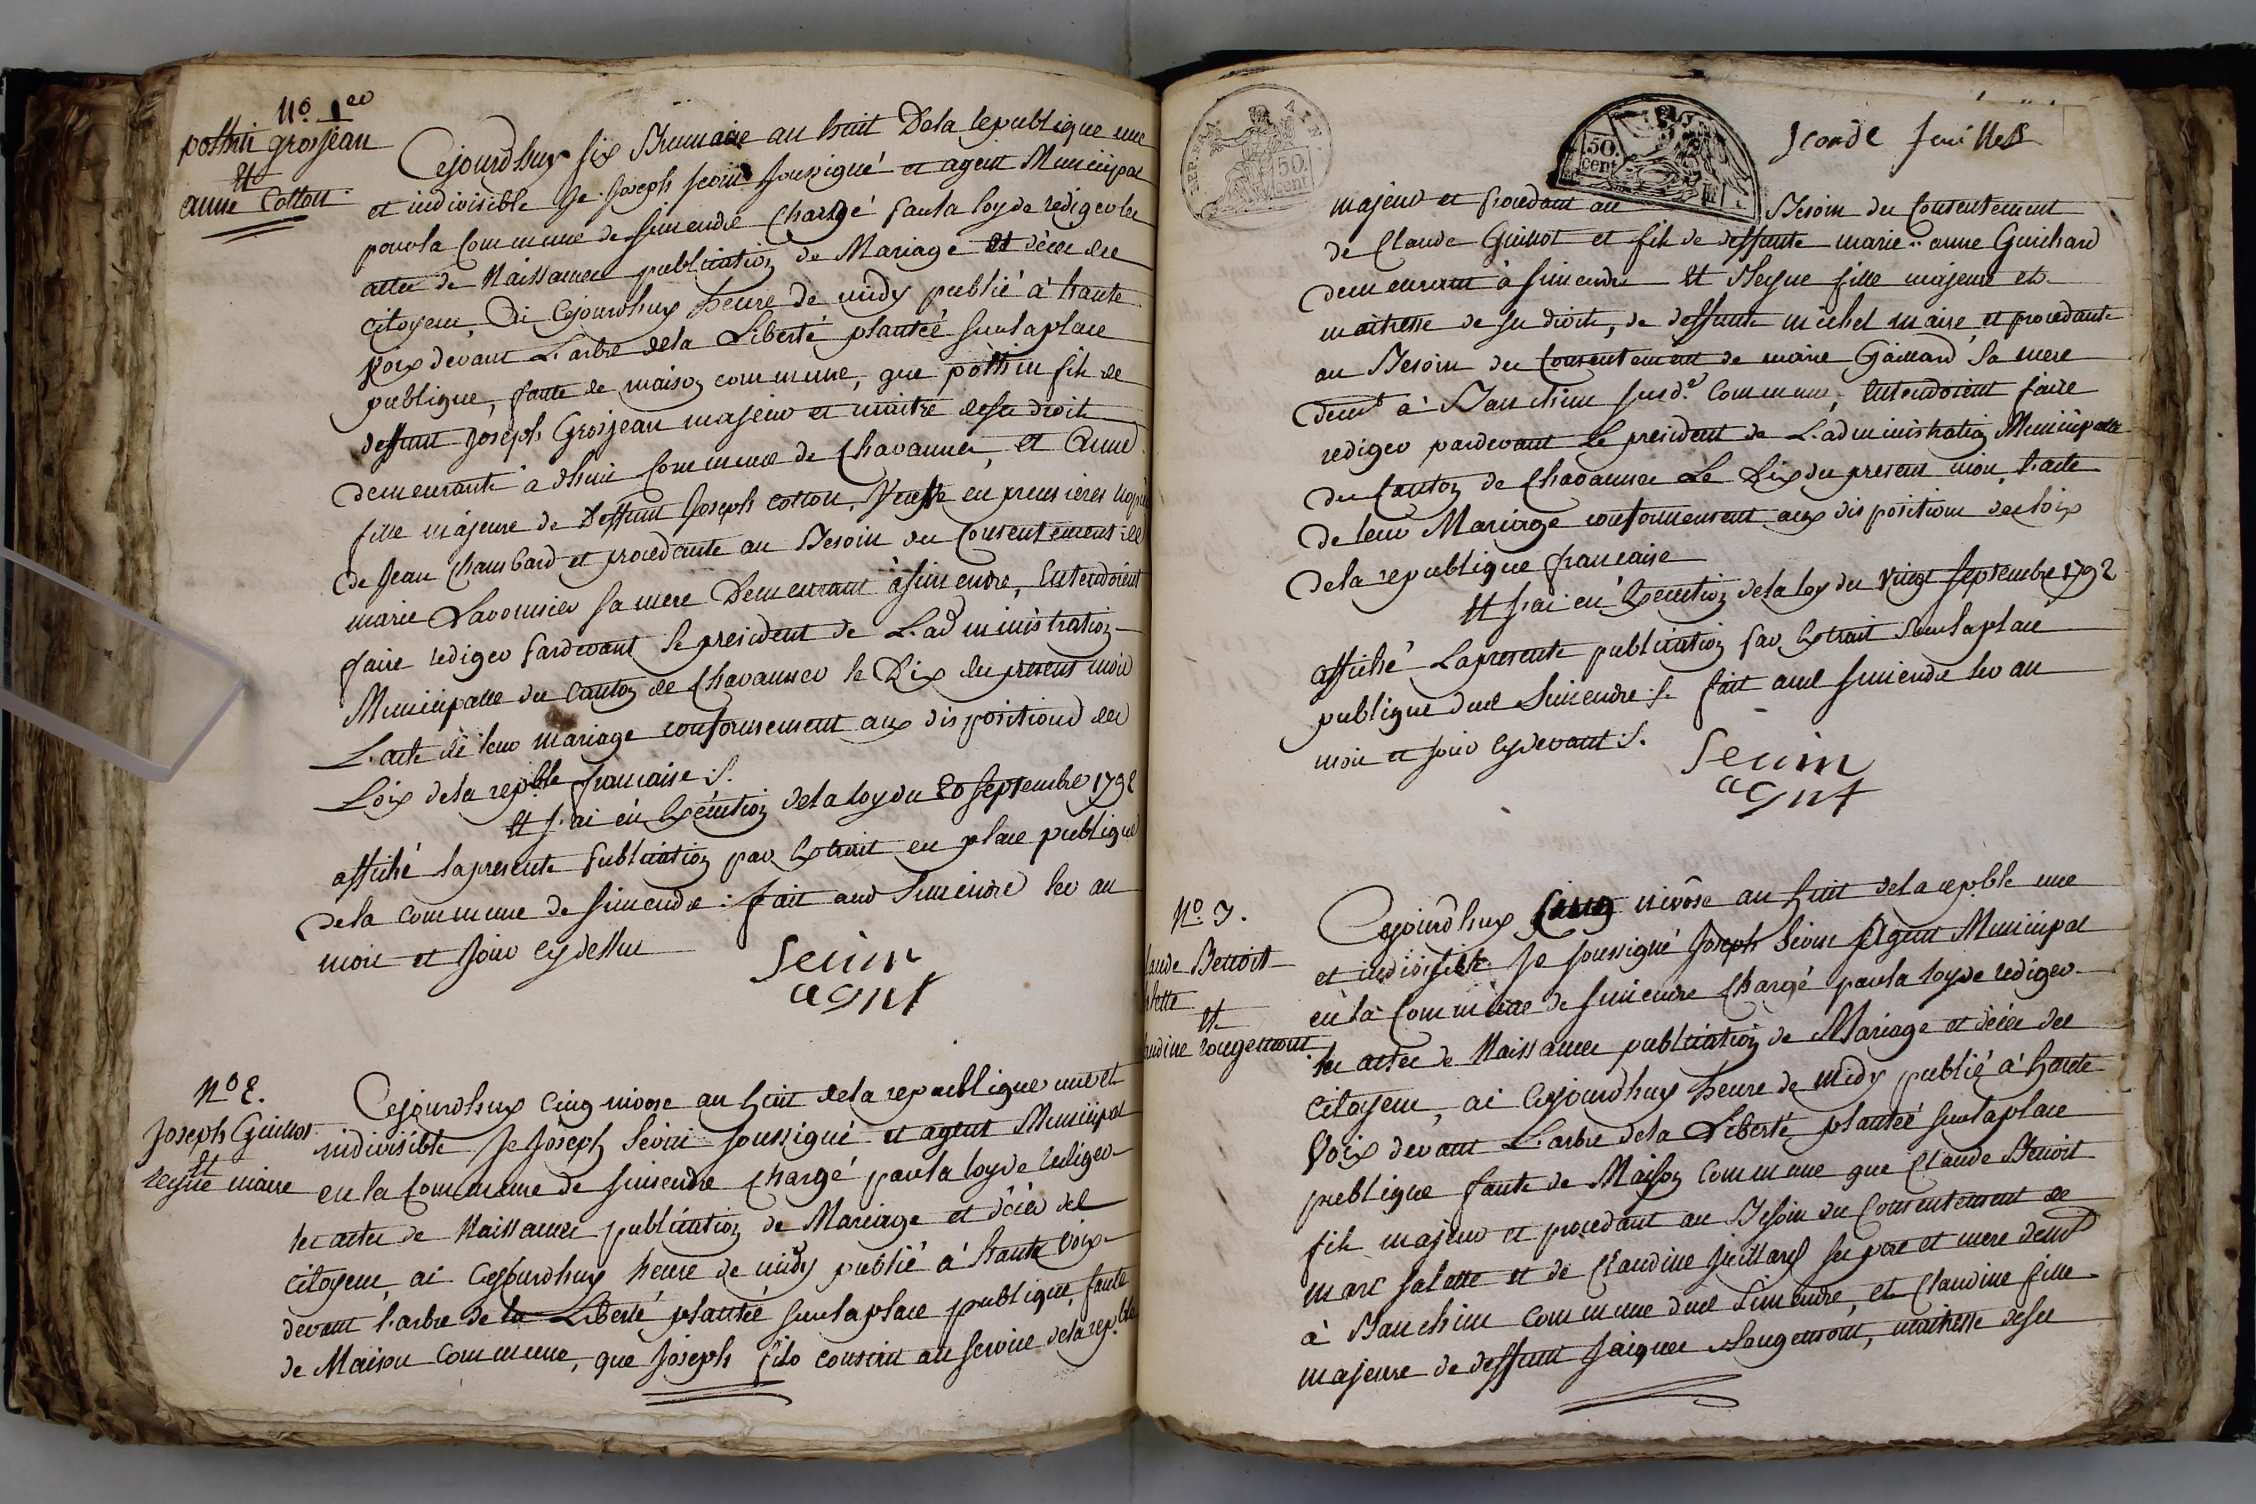 No. 1er
pothin grosjean
Et
anne Cotton
Cejourdhuy six Brumaire an huit Dela republique une
et indivisible Je Joseph sevin soussigné et agent Municipal
pour la Commune de simendre Chargé par la loy de rediger les
actes de Naissances publication de Mariage et décès des
citoyens, ai Cejourdhuy heure de midy publié à haute
voix devant L'arbre dela Liberté plantée sur la place
publique, faute de maison commune, que pothin fils de
deffunt Joseph Grosjean majeur et maitre de ses droit
demeurante à dhuis Commune de Chavannes, et Anne
fille majeure de Deffunt Joseph Cotton, veuve en premieres nopces
de Jean Chambard et procedante au Besoin du Consentement de
marie Lavornier sa mere Demeurant à simendre, Entendoient
faire rediger pardevant le president de L'administration
Municipalle du canton de Chavannes le Dix du present mois
L'acte de leur mariage conformement aux dispositions des
Loix dela repble francaise ./.
Et j'ai en Execution dela loy du 20 septembre 1792
affiché la presente publication par Extrait en place publique
dela commune de simendre : fait aud Simendre les an
mois et jour cy dessus
Sevin
agnt
No 2.
Joseph Guillot
et
reyne maire
Cejourdhuy cinq nivose an huit dela republique une et
indivisible Je Joseph Sevin soussigné et agent Municipal
en la Commune de simendre chargé par la loy de rediger
les actes de Naissances publication de Mariage et décès des
citoyens, ai Cejourdhuy heure de midy publié à haute voix
devant l'arbre de la Liberté plantée sur la place publique, faute
de Maison commune, que Joseph fils conscrit au service dela repble
seconde feuillet
50.
cent
50.
cent
majeur et procedant au Besoin du Consentement
de Claude Guillot et fils de deffunte marie anne Guichard
demeurant à simendre Et Reyne fille majeure et
maitresse de ses droits, de deffunt michel maire, et procedante
au Besoin du Consentement de marie Gaillard sa mere
demt à Banchin susd.e Commune, Entendoient faire
rediger pardevant le president de L'administration Municipalle
du Canton de Chavannes Le Dix du present mois, l'acte
de leur Mariage conformement aux dispositions des loix
dela republique francaise
Et j'ai en Execution dela loy du vingt septembre 1792
affiché La presente publication par Extrait sur la place
publique dud Simendre ./. fait aud simendre les an
mois et jour cy devant ./.
Sevin
agnt
No. 3.
laude Benoit
salette
et
audine rougemont
Cejourdhuy cinq nivôse an huit dela repble une
et indivisible Je soussigné Joseph Sevin Agent Municipal
en la Commune de simendre Chargé par la loy de rediger
les actes de Naissances publication de Mariage et décès des
citoyens, ai Cejourdhuy heure de midy publié à haute
Voix devant L'arbre dela Liberté plantée sur la place
publique faute de Maison Commune que Claude Benoit
fils majeur et procedant au Besoin du Consentement de
marc salette et de Claudine Juillard ses pere et mere demt
à Banchin Commune dud Simendre, et Claudine fille
majeure de deffunt Jaiques Rougemont, maitresse de ses